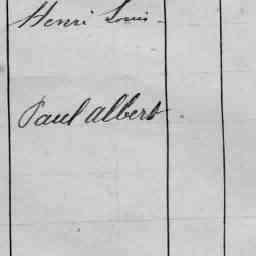 Henri Louis
Paul albert